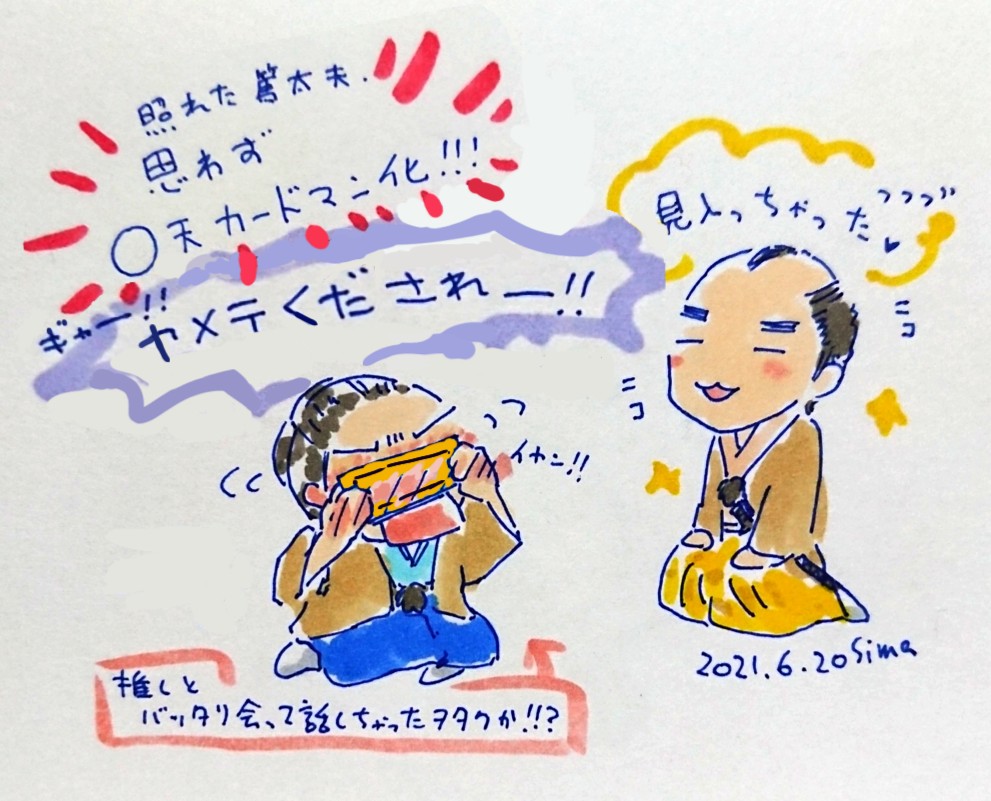 照れた篤太夫.
思わず
〇天カードマン化!!!
ギャー!!
ヤメテくだされー!!
見入っちゃったっっっ♥
ニコ
ニコ
イヤン!!
推しと
バッタリ会って話しちゃったヲタクか!!?
2021.6.20 Sima